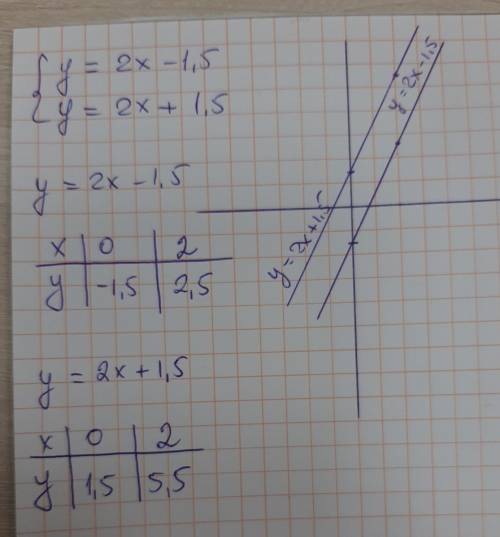 y = 2x - 1,5
y = 2x + 1,5
y = 2x - 1,5
x 0 2
y -1,5 2,5
y = 2x + 1,5
x 0 2
y 1,5 5,5
y = 2x + 1,5
y = 2x - 1,5